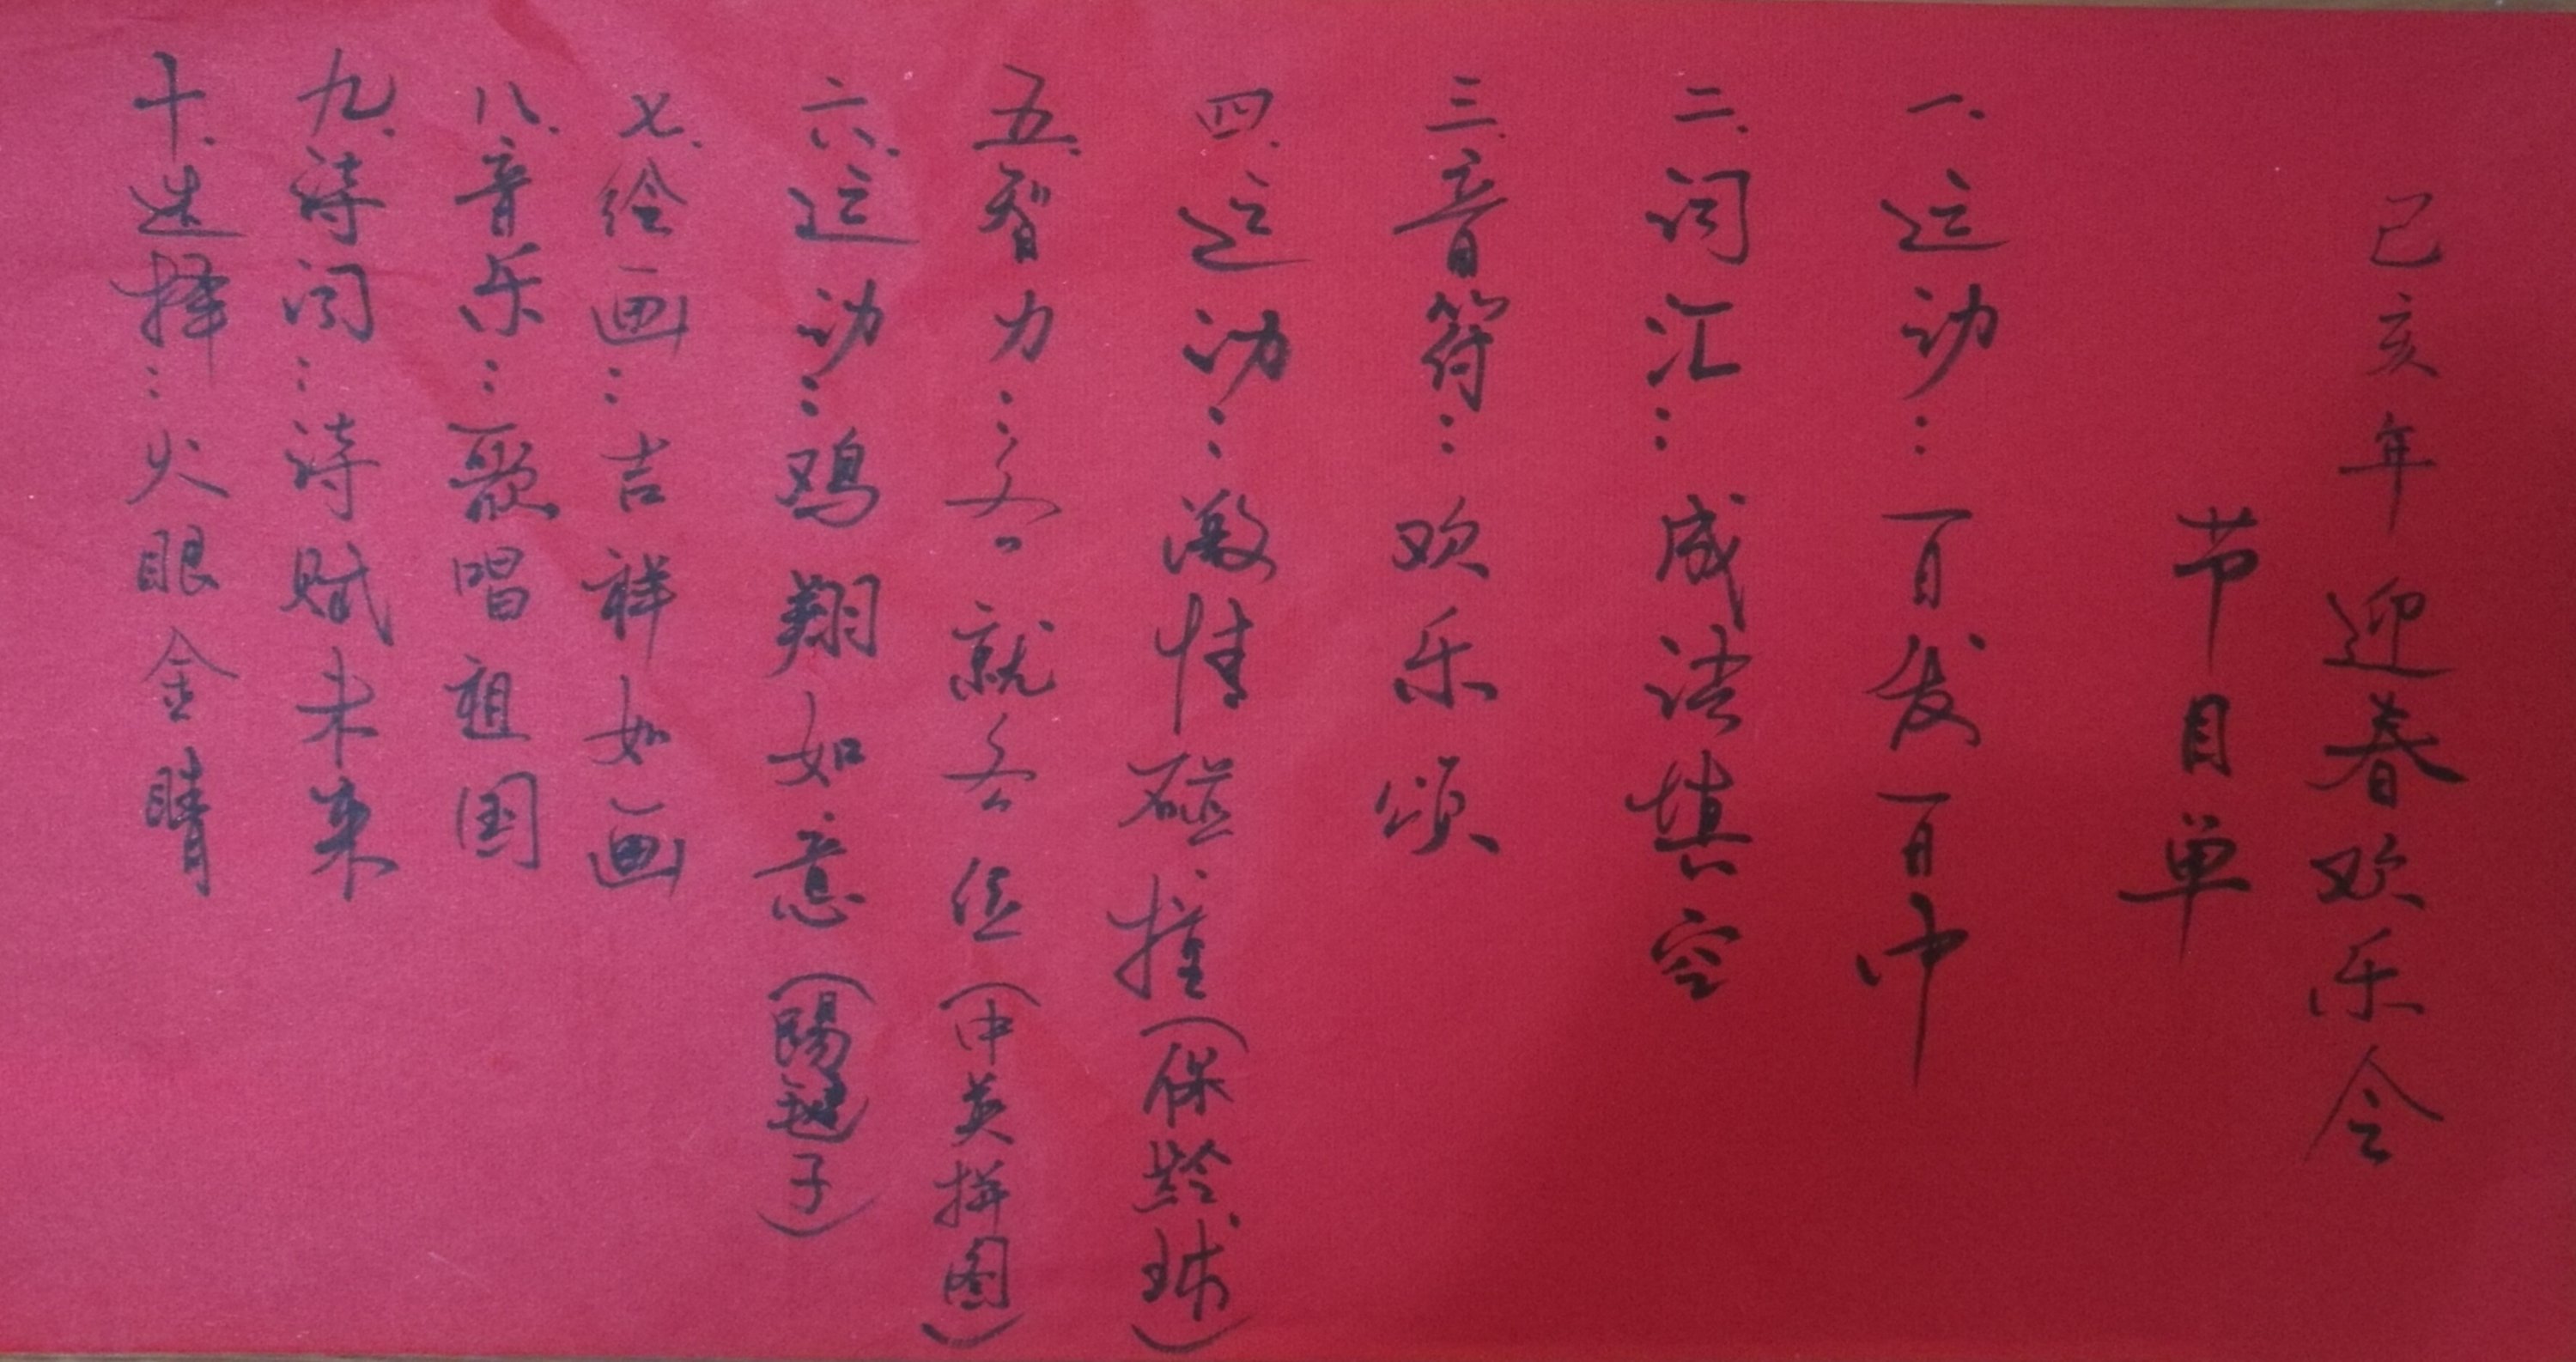 己亥年迎春欢乐会
节目单
一、运动：百发百中
二、词汇：成语填空
三、音符：欢乐颂
四、运动：激情碰撞（保龄球）
五、智力：各就各位（中英拼图）
六、运动：鸡翔如意（踢毽子）
七、绘画：吉祥如画
八、音乐：歌唱祖国
九、诗词：诗赋未来
十、选择：火眼金睛